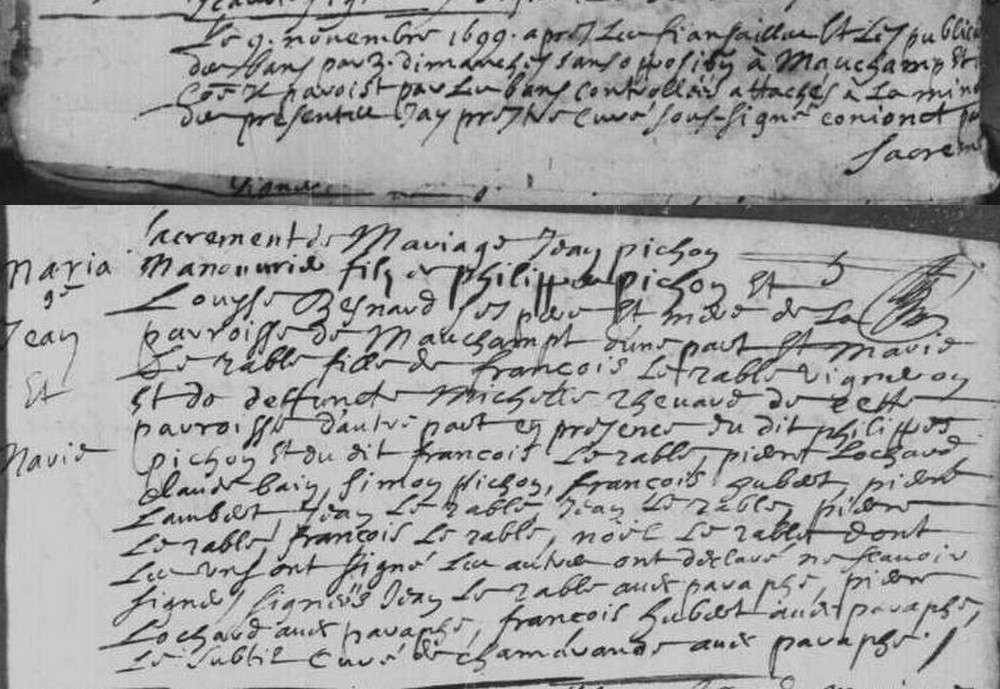 Le 9. novembre 1699. apres les fiansailles Et les publica
des bans par 3. dimanches sans oposition à Mauchamp Et
Coe Il paroist par les bans controllées attachés à La minu
des presentes J'ay prestre Curé sous-signé conionct par
sacrem
sacrement de Mariage Jean pichon
Manouvrier fils de philippes pichon Et
Louyse Besnard ses pere Et mere de La
parroisse de Mauchampt d'une part Et Marie
Le rable fille de francois Le rable vigneron
Et de deffuncte Michelle Thenard de cette
parroisse d'autre part en presence du dit philippes
pichon Et du dit francois Le rable, pierre Lochard
Claude bain, simon pichon, françois hubert, pierre
Lambert, Jean Le rable, Jean Le rable, pierre
Le rable, francois Le rable, noël Le rable dont
Les uns ont signé Les autres ont declaré ne scavoir
signer, signéés Jean Le rable avec paraphe, pierre
Lochard avec paraphe, francois hubert avec paraphe,
Le subtil Curé de chamarande avec paraphe.
Maria
ge
Jean
Et
Marie